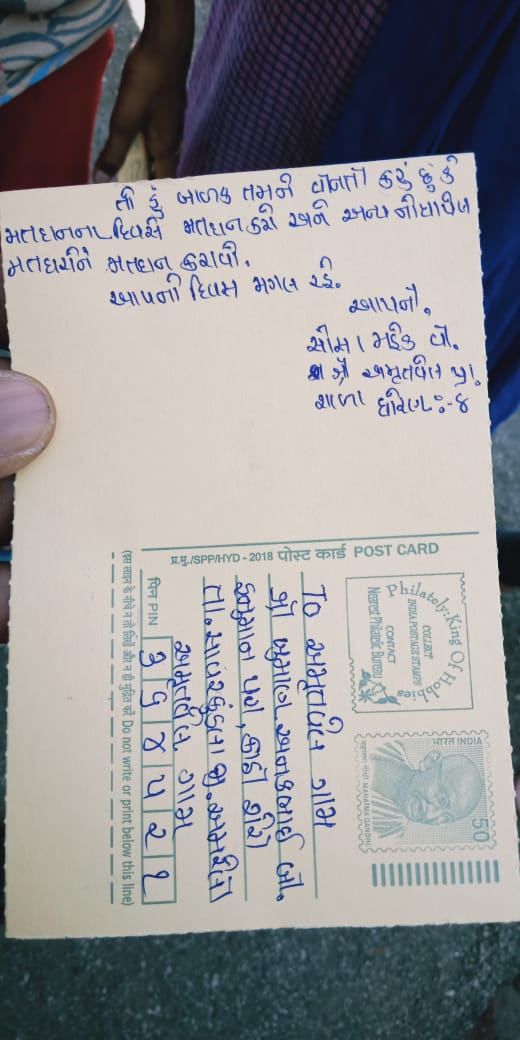 તો હું બાળક તમને વીનતી કરું છું કે
મતદાનના દિવસે મતદાન કરો અને અન્ય
મતદારોને મતદાન કરાવો.
આપનો દિવસ મગલ રહે.
આપનો,
સોમા મઈડ વી.
શ્રી અમૃતવેલ પ્રા.
શાળા ધોરણ :- ૪
प्र.मु./SPP/HYD - 2018 पोस्ट कार्ड POST CARD
Philately: King Of Hobbies
COLLECT
INDIA POSTAGE STAMPS
CONTACT
Nearest Philatelic Bureau
भारत INDIA
महात्मा गांधी MAHATMA GANDHI
50
To અમૃતવેલ ગામ
શ્રી ખુમાણ અનકભાઈ બી.
ખુમાણ પરા,
તા. સાવરકુંડલા જી. અમરેલી
અમૃતવેલ ગામ
पिन PIN ૩ ૬ ૪ ૫ ૨ ૧
(इस लाइन के नीचे न तो लिखें और न ही मुद्रित करें Do not write or print below this line)